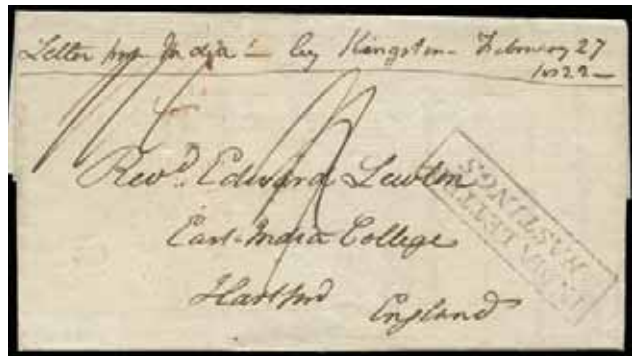 Letter from India – by Kingston – February 27
1822 –
Revd. Edward Lewton
East-India College
Hartford
England
INDIA LETTER
HASTINGS